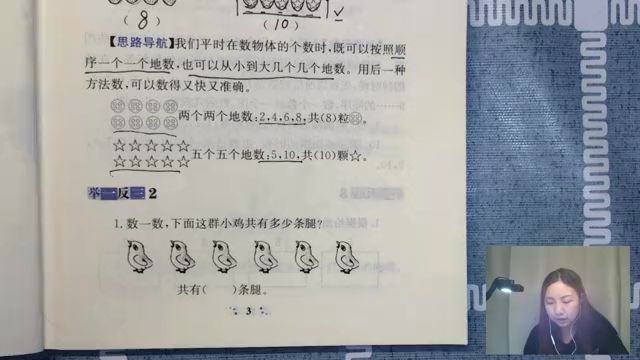 (8) (10)
【思路导航】我们平时在数物体的个数时,既可以按照顺
序一个一个地数,也可以从小到大几个几个地数。用后一种
方法数,可以数得又快又准确。
两个两个地数:2,4,6,8,共(8)粒。
五个五个地数:5,10,共(10)颗☆。
举一反三 2
1. 数一数,下面这群小鸡共有多少条腿?
共有( )条腿。
3